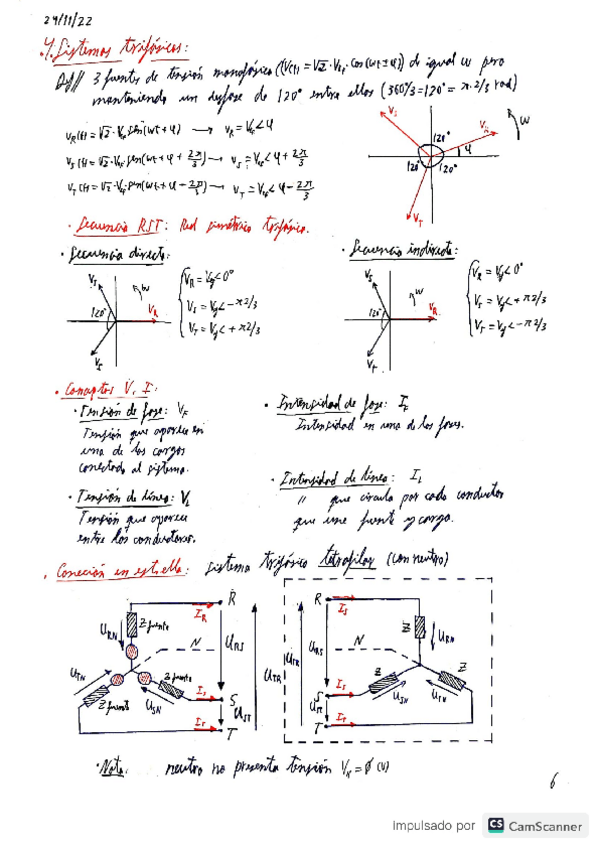 24/11/22
4. Sistemas trifásicos:
Def// 3 fuentes de tensión monofásica (V(t) = √2 · Vef · cos(wt ± φ)) de igual w pero
manteniendo un desfase de 120° entre ellos (360°/3 = 120° = π·2/3 rad)
VR(t) = √2 · Vef sen(wt + φ) → VR = Vef∠φ
VS(t) = √2 · Vef · sen(wt + φ + 2π/3) → VS = Vef∠φ + 2π/3
VT(t) = √2 · Vef sen(wt + φ - 2π/3) → VT = Vef∠φ - 2π/3
VS
VR
W
120°
φ
120°
120°
VT
· Secuencia RST: Red simétrica trifásica.
· Secuencia directa:
VS
W
120°
VR
VS
VR = Vef∠0°
VS = Vef∠-π2/3
VT = Vef∠+π2/3
· Secuencia indirecta:
VS
W
120°
VR
VT
VR = Vef∠0°
VS = Vef∠+π2/3
VT = Vef∠-π2/3
· Conceptos V, I:
· Tensión de fase: VF
Tensión que aparece en
una de las cargas
conectada al sistema.
· Tensión de línea: VL
Tensión que aparece
entre los conductores.
· Intensidad de fase: IF
Intensidad en una de las fases.
· Intensidad de línea: IL
" que circula por cada conductor
que une fuente y carga.
· Conexión en estrella: Sistema trifásico tetrapilar (con neutro)
R
IR
Z fuente
URN
N
URS
UTR
UTN
Z fuente
IS
S
Z fuente
USN
UST
IT
T
R
IS
Z
URN
UTR
URS
N
S
IS
Z
Z
UST
USN
UTN
IT
T
· Nota: neutro no presenta tensión VN = 0 (V)
6
Impulsado por CS CamScanner